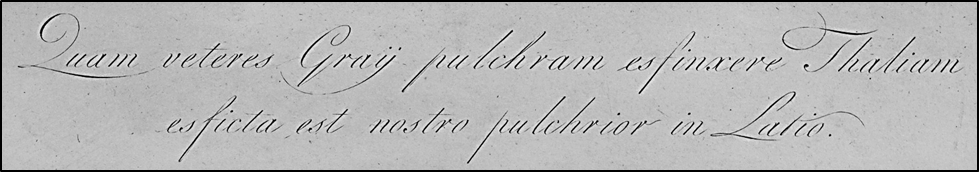 Quam veteres Graÿ pulchram esfinxere Thaliam
esficta est nostro pulchrior in Latio.